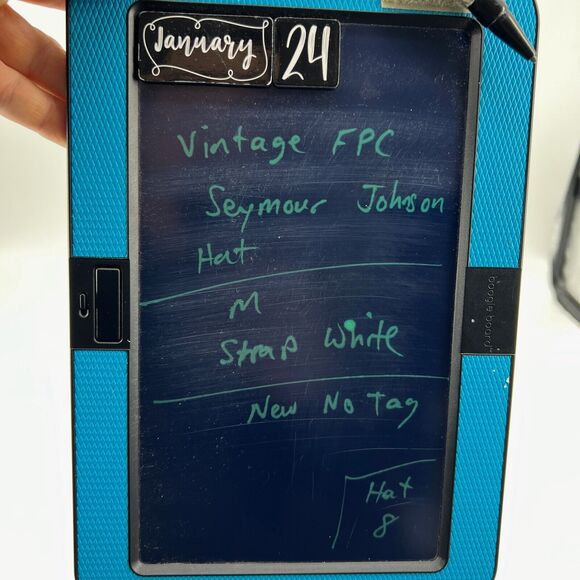 January 24
Vintage FPC
Seymour Johnson
Hat
M
Strap White
New No Tag
Hat
8
boogie board